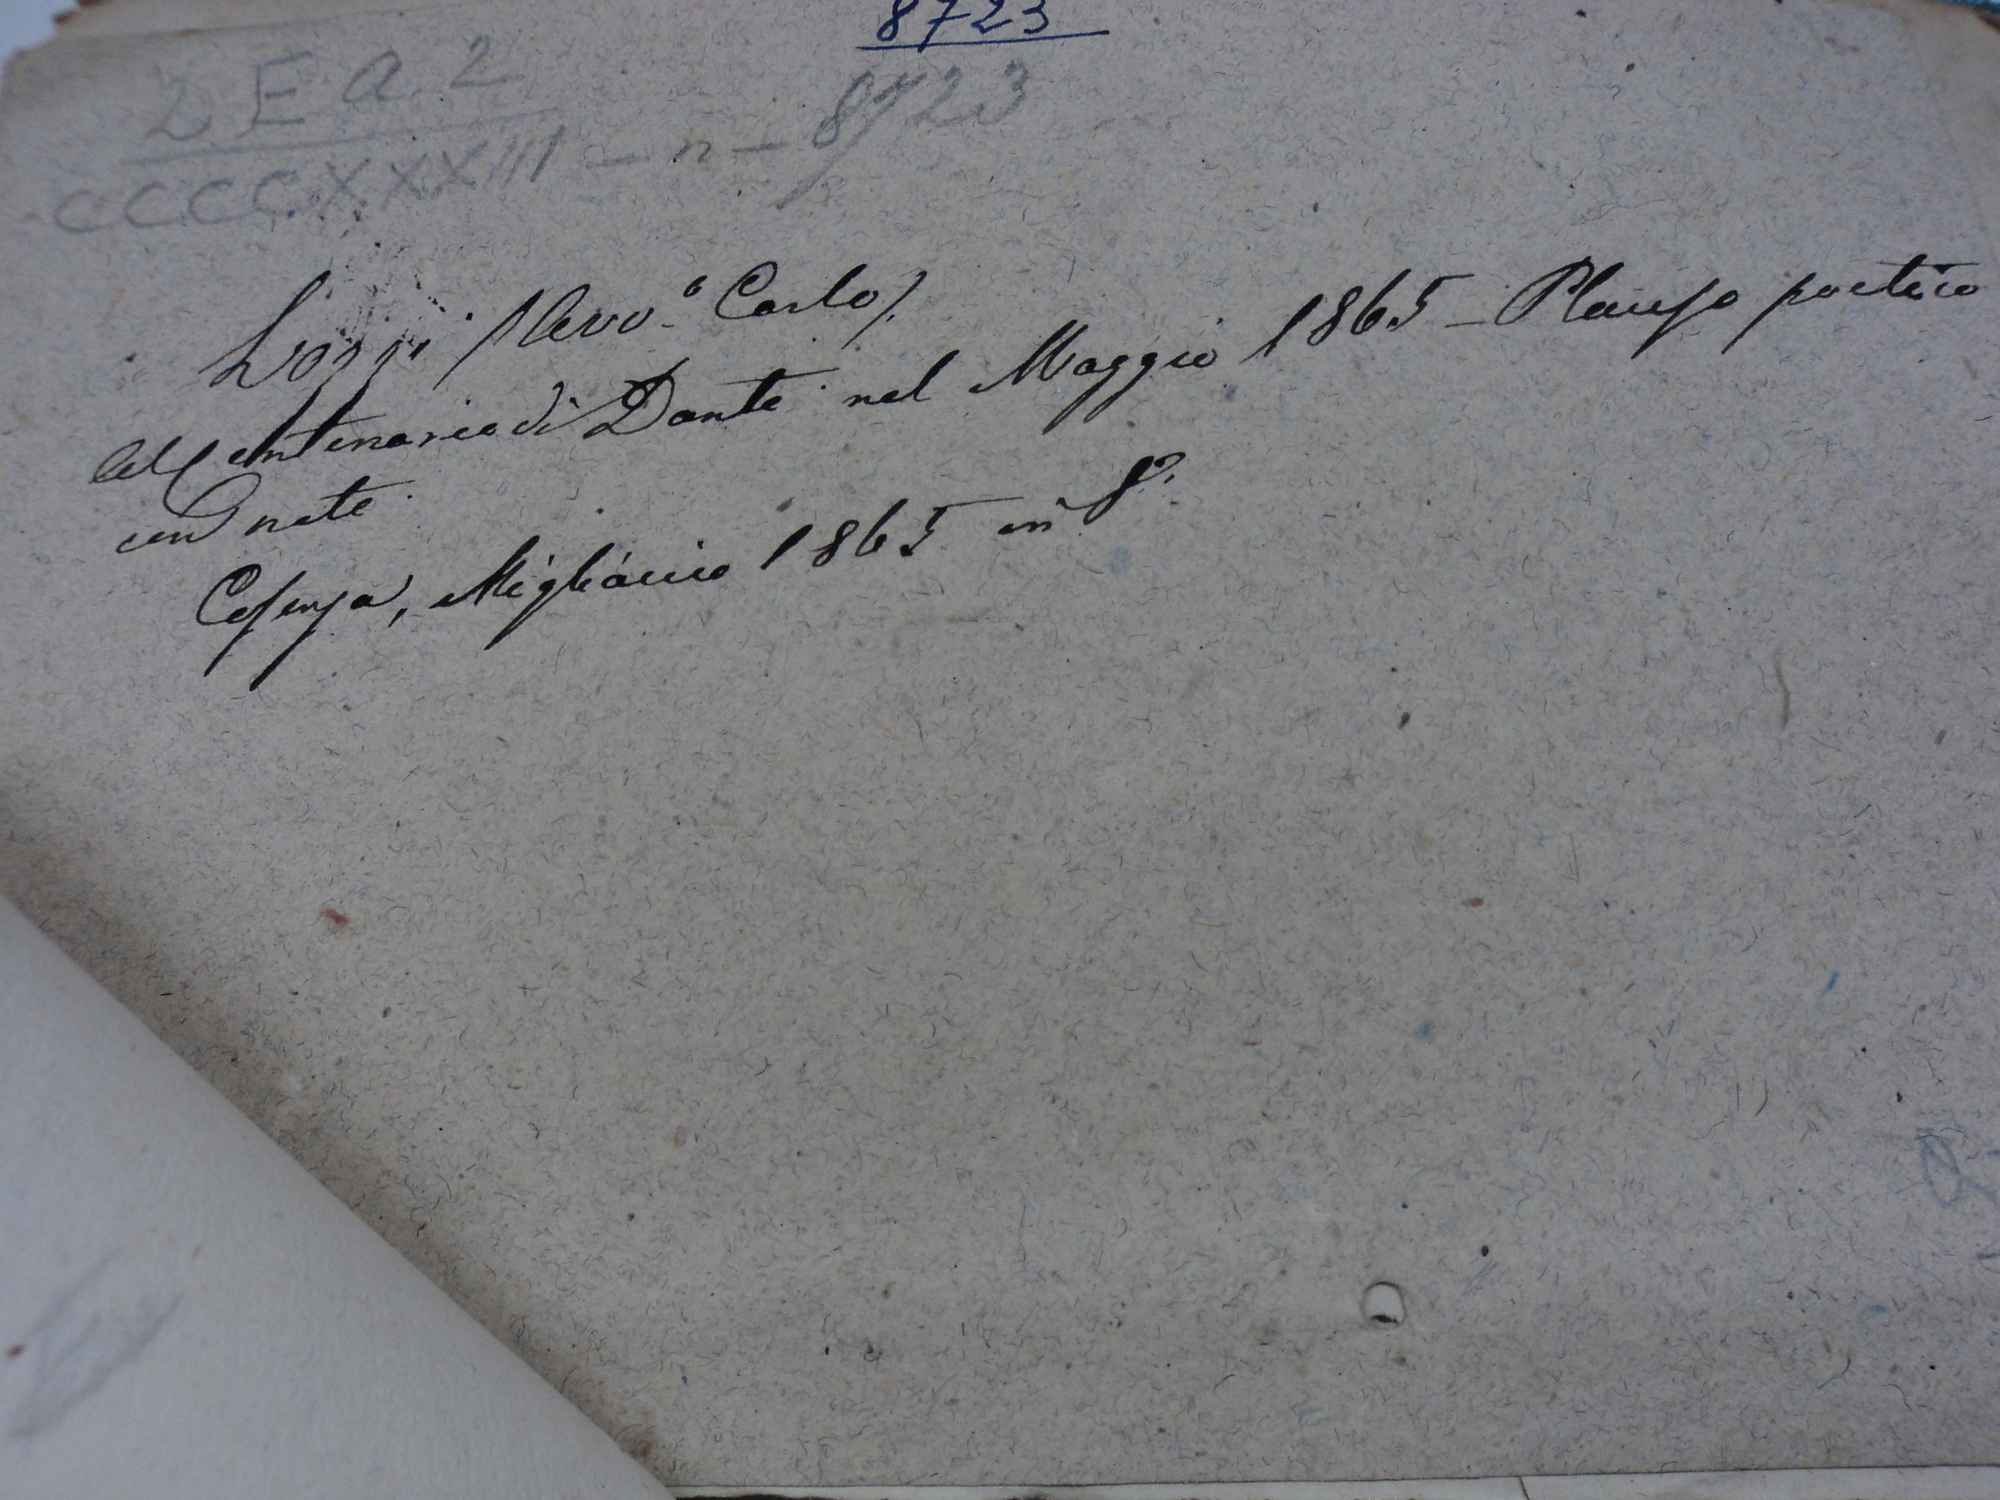 8723
2 E a 2
CCCCXXXIII - n - 8723
Lozzi (Avv.o Carlo).
Al Centenario di Dante nel Maggio 1865 - Plauso poetico
con note
Cosenza, Migliaccio 1865 in 8o.